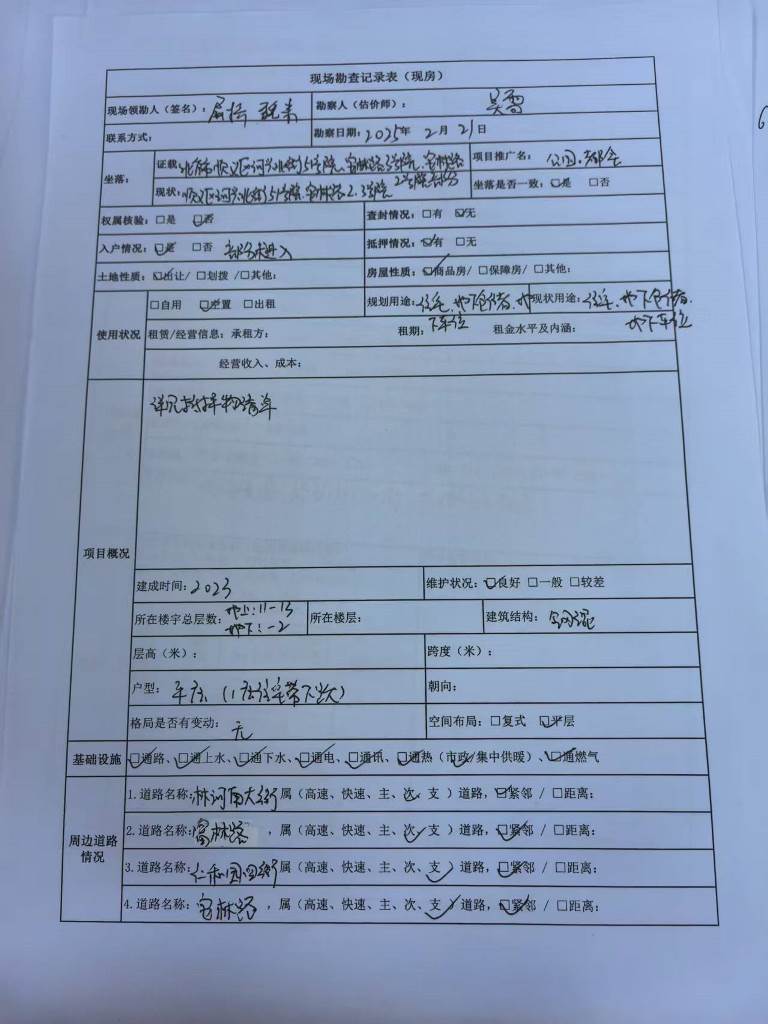 现场勘查记录表（现房）
现场领勘人（签名）： 勘察人（估价师）： 吴雪
联系方式： 勘察日期：2025年 2月 21日
坐落： 证载：北京市顺义区河兴北街51号院、富林路3号院、富林路 项目推广名： 公园都会
2号院部分
现状：顺义区河兴北街51号院、富林路2.3号院 坐落是否一致：☑是 □否
权属核验：□是 ☑否 查封情况：□有 ☑无
入户情况：☑是 □否 部分未进入 抵押情况：☑有 □无
土地性质：☑出让/ □划拨 /□其他： 房屋性质：☑商品房/ □保障房/ □其他：
使用状况 □自用 ☑空置 □出租 规划用途：住宅、地下仓储、地下车位 现状用途：住宅、地下仓储、地下车位
租赁/经营信息：承租方： 租期： 租金水平及内涵：
经营收入、成本：
项目概况
详见抵押物清单
建成时间：2023 维护状况：☑良好 □一般 □较差
所在楼宇总层数：地上：11-13 地下：-2 所在楼层： 建筑结构：钢混
层高（米）： 跨度（米）：
户型： 平层（1层住宅带下跃） 朝向：
格局是否有变动： 无 空间布局：□复式 ☑平层
基础设施 ☑通路、☑通上水、☑通下水、☑通电、☑通讯、☑通热（市政/集中供暖）、☑通燃气
周边道路情况
1.道路名称：林河南大街属（高速、快速、主、次、支）道路，☑紧邻 / □距离：
2.道路名称：富林路 ，属（高速、快速、主、次、支）道路，☑紧邻 / □距离：
3.道路名称：仁和园四街属（高速、快速、主、次、支）道路，☑紧邻 / □距离：
4.道路名称：富林路 ，属（高速、快速、主、次、支）道路，☑紧邻 / □距离：